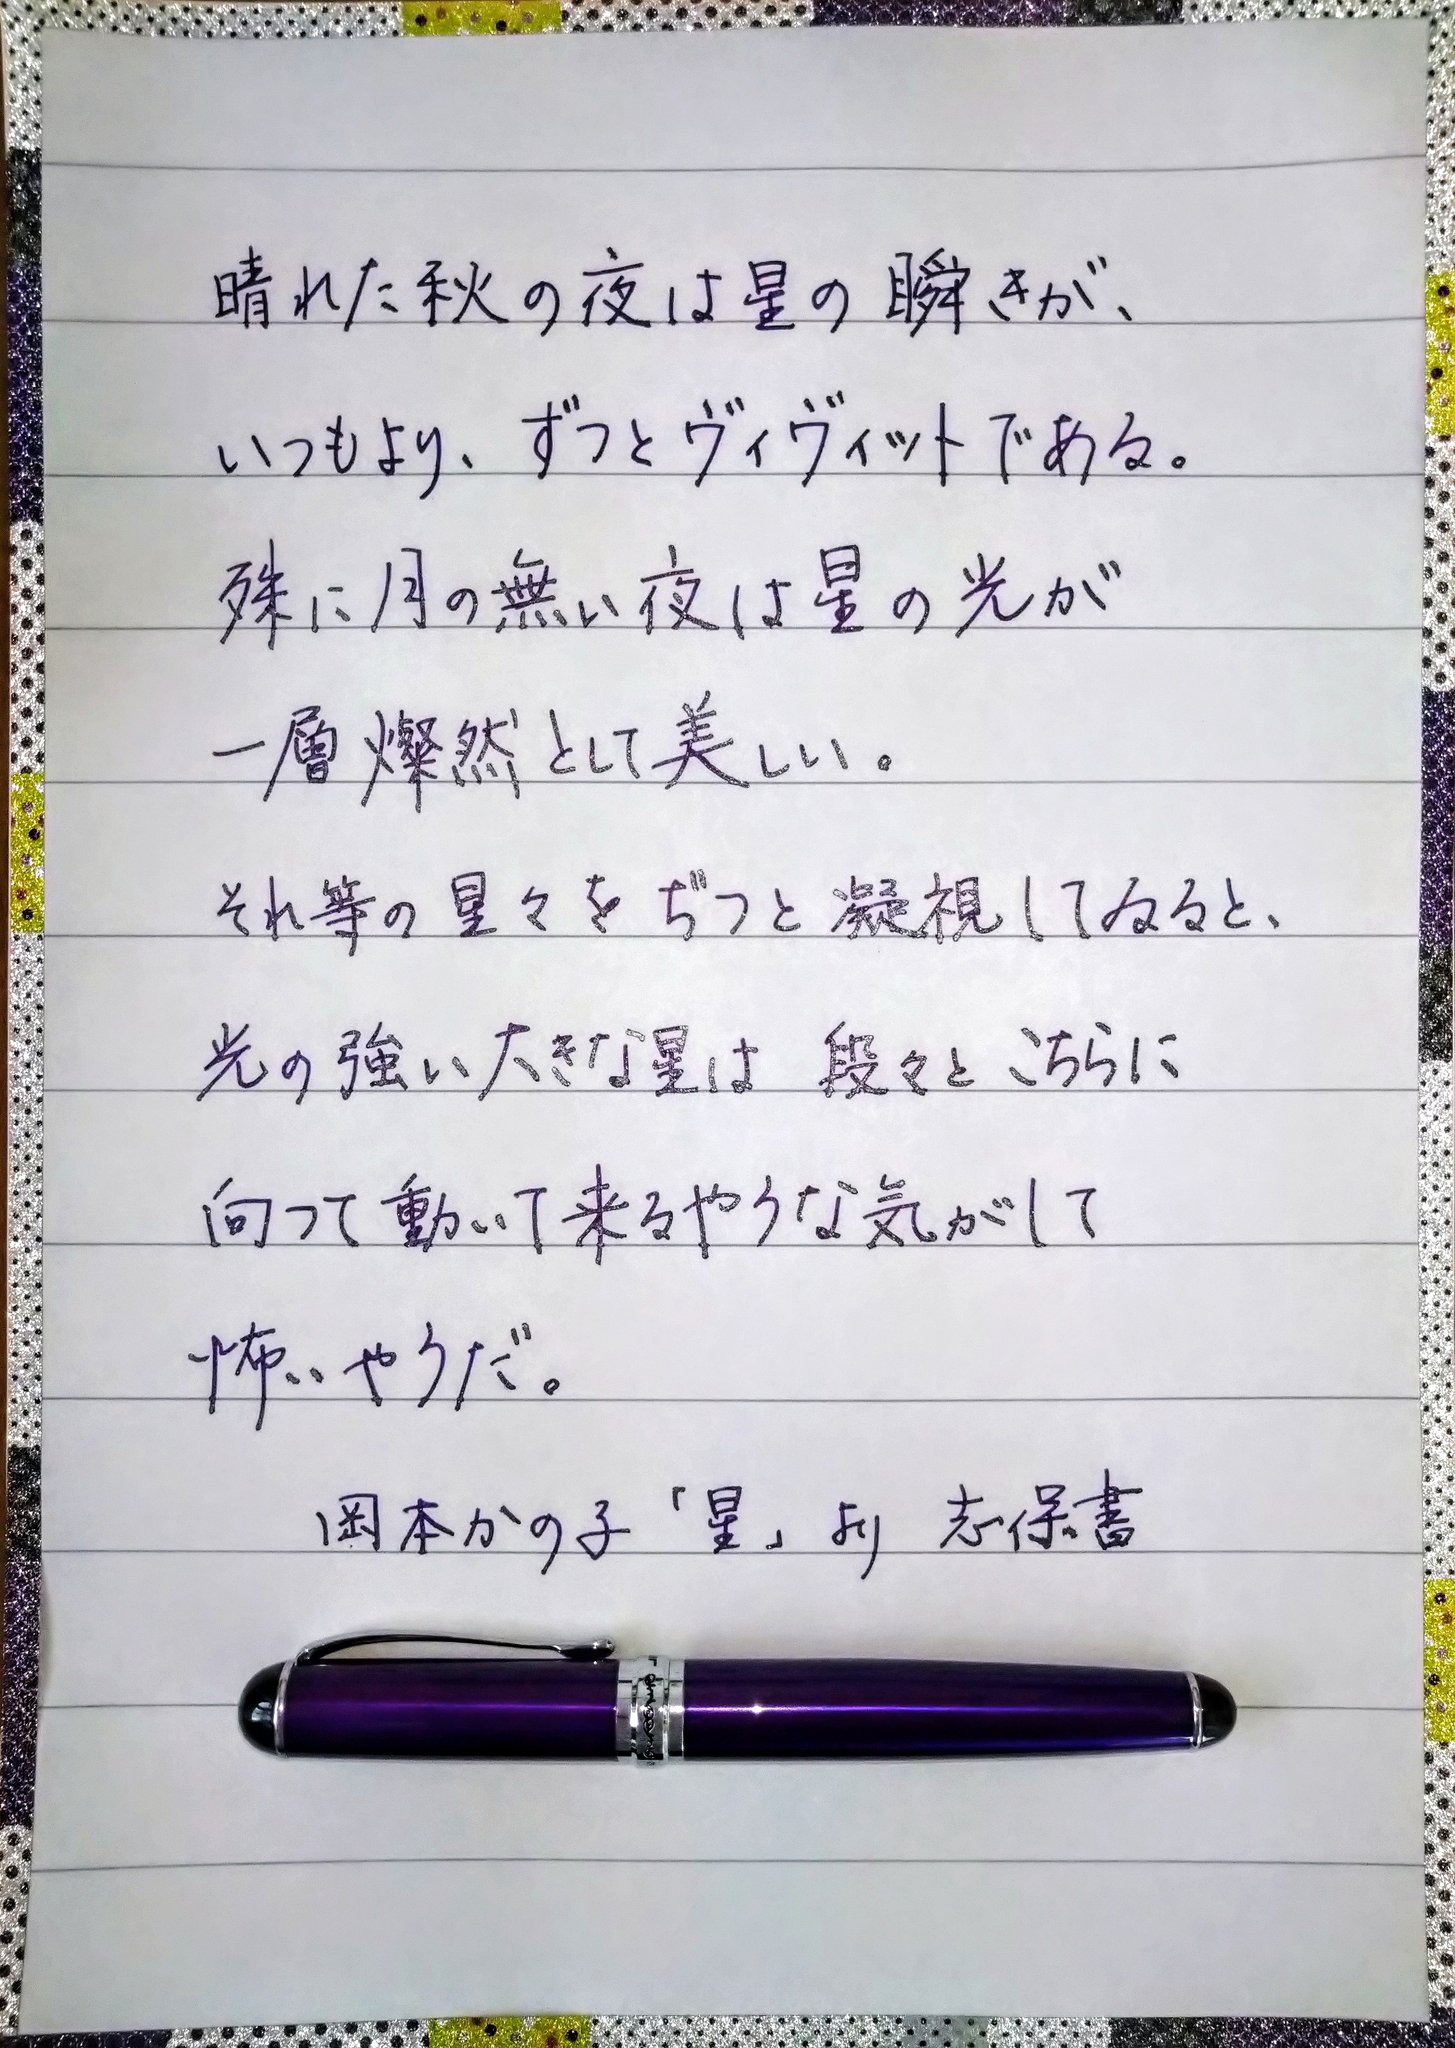 晴れた秋の夜は星の瞬きが、
いつもより、ずつとヴィヴィットである。
殊に月の無い夜は星の光が
一層燦然として美しい。
それ等の星々をぢつと凝視してゐると、
光の強い大きな星は段々とこちらに
向つて動いて来るやうな気がして
怖いやうだ。
岡本かの子「星」より 志保書